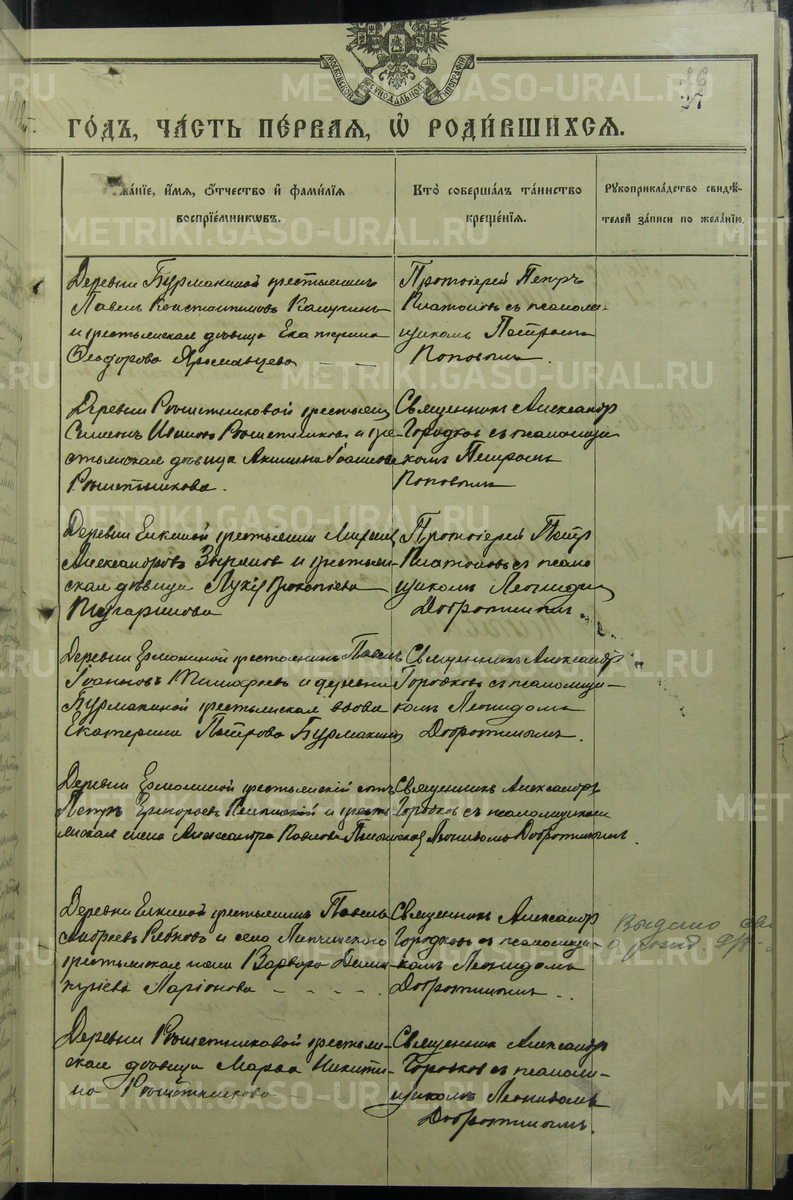 27
ГОДЪ, ЧАСТЬ ПЕРВАЯ, Ѡ РОДИВШИХСЯ.
Званіе, имя, отчество и фамилія
воспріемниковъ.
Кто совершалъ таинство
крещенія.
Рукоприкладство свидѣ-
телей записи по желанію.
Деревни Бурмакиной крестьянинъ
Павелъ Константиновъ
и крестьянская дѣвица Екатерина
Ѳеодорова Ярославцева
Протоіерей Петръ
Платоновъ съ псалом-
щикомъ Петромъ
Поповымъ.
Деревни Рѣшетниковой крестьян
Симеонъ Рѣшетниковъ и кре-
стьянская дѣвица Акилина Іоаннова
Рѣшетникова.
Священникъ Александр
Городковъ съ псаломщи
комъ Петромъ
Поповымъ
Деревни Елкиной крестьянин
Александровъ Зырянов и крестьян-
ская дѣвица Прокопіева
Протоіерей Петр
Платоновъ съ псалом
щикомъ Леонидом
Добротинымъ.
Деревни Ермолиной крестьянинъ Павелъ
Іоанновъ и деревни
Бурмакиной крестьянская вдова
Екатерина Петрова Бурмакина
Священникъ Александр
Городковъ съ псаломщи-
комъ Леонидомъ
Добротинымъ.
Деревни Ермолиной крестьянскій сынъ
Петръ Григорьевъ и кресть-
янская жена Александра Павлова
Священникъ Александръ
Городковъ съ псаломщикомъ
Леонидомъ Добротинымъ.
Деревни Елкиной крестьянинъ Павелъ
Андреевъ и села Липчинского
крестьянская жена Варвара Дими-
тріева Ларіонова
Священникъ Александр
Городковъ съ псаломщи-
комъ Леонидомъ
Добротинымъ.
Выдано
о рожд.
Деревни Рѣшетниковой крестьян-
ская дѣвица Марѳа Никити-
на Рѣшетникова
Священник Александр
Городковъ съ псалом-
щикомъ Леонидомъ
Добротинымъ.
METRIKI.GASO-URAL.RU